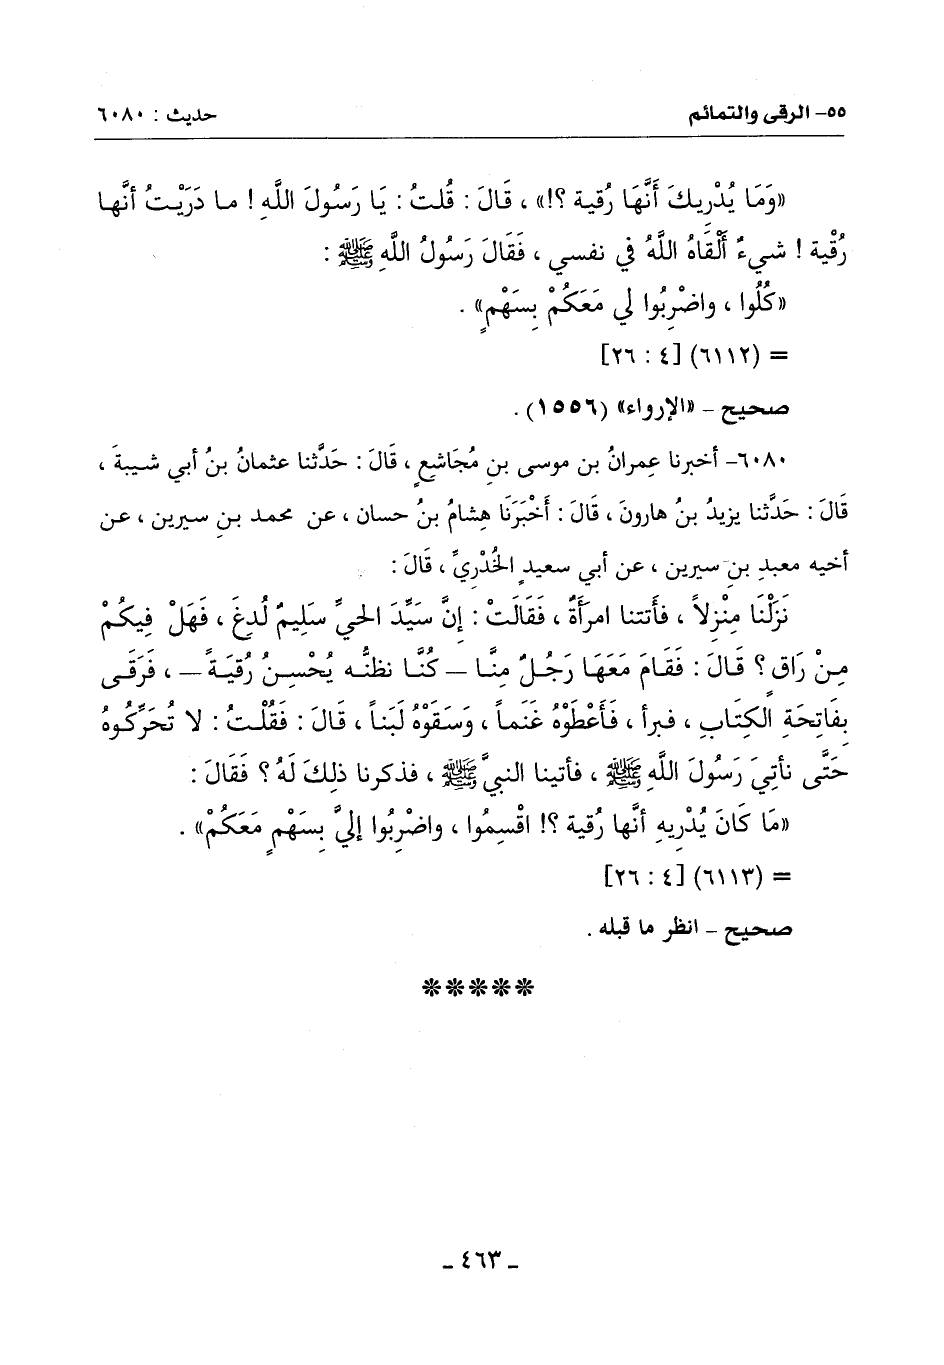 ٥٥- الرقى والتمائم
حديث : ٦٠٨٠
«وَمَا يُدْرِيكَ أَنَّهَا رُقية ؟!» ، قَالَ : قُلتُ : يَا رَسُولَ اللَّهِ ! ما دَرَيْتُ أنَّها
رُقْيِة ! شيءٌ أَلْقَاهُ اللَّهُ في نفسي ، فَقَالَ رَسُولُ اللَّهِ ﷺ :
«كُلُوا ، واضْرِبُوا لي مَعَكُمْ بِسَهْمٍ» .
= (٦١١٢) [٤ : ٢٦]
صحيح - «الإرواء» (١٥٥٦) .
٦٠٨٠- أخبرنا عِمرانُ بن موسى بنِ مُجَاشعٍ ، قَالَ : حَدَّثنا عثمانُ بنُ أبي شيبةَ ،
قَالَ : حَدَّثنا يزيدُ بنُ هارونَ ، قَالَ : أَخْبَرَنَا هِشامُ بنُ حسان ، عن محمد بنِ سيرين ، عن
أخيه معبدِ بنِ سيرين ، عن أبي سعيدٍ الخُدْريِّ ، قَالَ :
نَزَلْنَا مِنْزِلاً ، فأتتنا امرَأةٌ ، فَقَالَتْ : إنَّ سَيِّدَ الحيِّ سَلِيمٌ لُدِغَ ، فَهَلْ فِيكُمْ
مِنْ رَاقٍ ؟ قَالَ : فَقَامَ مَعَهَا رَجُلٌ مِنَّا – كُنَّا نظنُّه يُحْسِنُ رُقيَةً – ، فَرَقَى
بفَاتِحَةِ الكِتَابِ ، فبرأ ، فَأَعْطَوْهُ غَنَماً ، وَسَقَوْهُ لَبَناً ، قَالَ : فَقُلْتُ : لا تُحَرِّكُوهُ
حَتَّى نأتِيَ رَسُولَ اللَّهِ ﷺ ، فأتينا النبيَّ ﷺ ، فذكرنا ذلِكَ لَهُ ؟ فَقَالَ :
«مَا كَانَ يُدْرِيهِ أنَّها رُقية ؟! اقْسِمُوا ، واضْرِبُوا إليَّ بِسَهْمٍ مَعَكُمْ» .
= (٦١١٣) [٤ : ٢٦]
صحيح - انظر ما قبله .
*****
ـ ٤٦٣ ـ